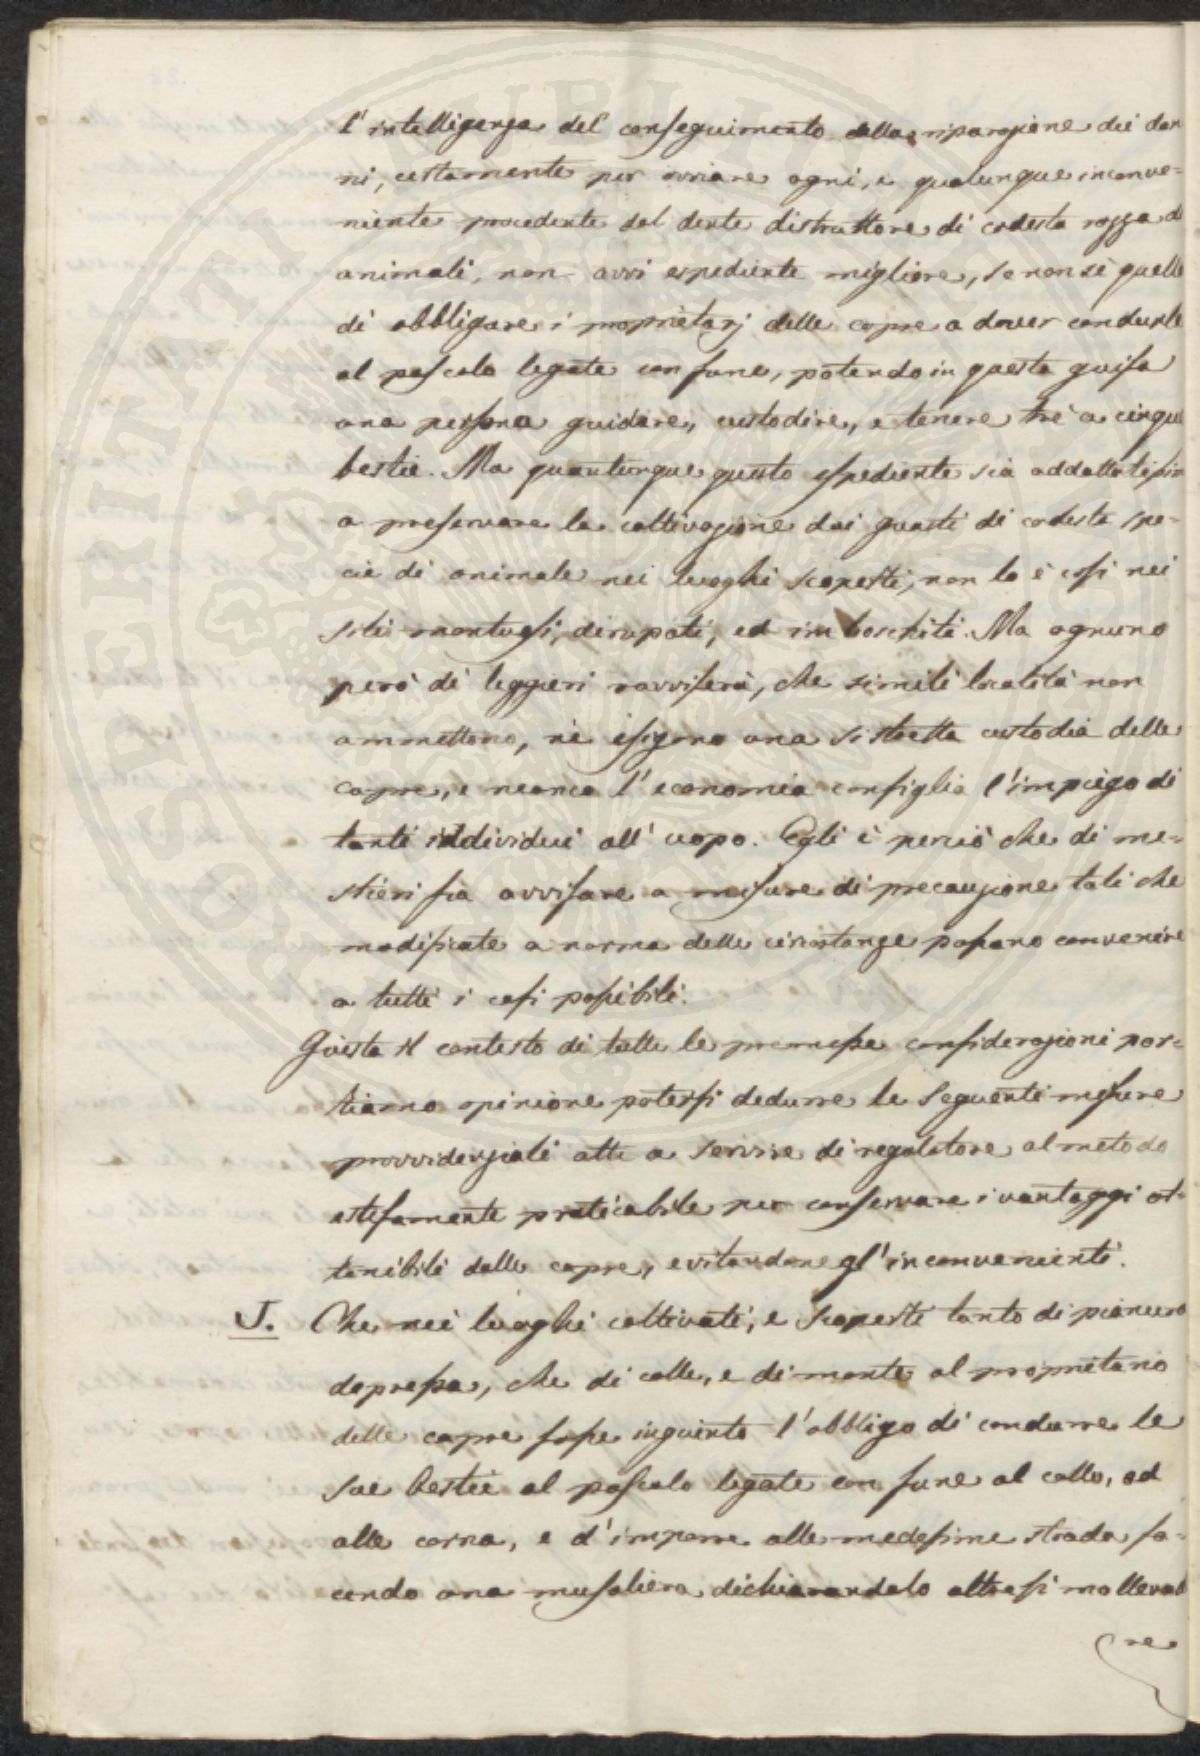 l'intelligenza del conseguimento della riparazione dei dan
ni, certamente per ovviare ogni, e qualunque inconve-
niente procedente dal dente distruttore di codesta razza di
animali, non avvi espediente migliore, se non sè quello
di obbligare i proprietarj delle capre a dover condurle
al pascolo legate con fune, potendo in questa guisa
una persona guidare, custodire, e tenere trè a cinque
bestie. Ma quantunque questo espediente sia addattatissimo
a preservare la coltivazione dai guasti di codesta spe-
cie di animale nei luoghi scoperti, non lo è così nei
siti montuosi, dirupati, ed imboschiti. Ma ognuno
però di leggieri ravviserà, che simili località non
ammettono, nè esigono una si stretta custodia delle
capre, e neanco l'economia consiglia l'impiego di
tanti individui all'uopo. Egli è perciò che di me-
stieri fia avvisare a misure di precauzione tali che
modificate a norma delle circostanze possano convenire
a tutti i casi possibili.
Giusta il contesto di tutte le premesse considerazioni por-
tiamo opinione potersi dedurre le seguenti misure
provvidenziali atte a servire di regolatore al metodo
estesamente praticabile per conservare i vantaggi ot-
tenibili dalle capre, evitandone gl'inconvenienti.
J. Che nei luoghi coltivati, e scoperti tanto di pianura
depressa, che di colle, e di monte al proprietario
delle capre fosse ingiunto l'obbligo di condurre le
sue bestie al pascolo legate con fune al collo, od
alle corna, e d'imporre alle medesime strada fa-
cendo una musoliera dichiarandolo altresì mallevado
re
PROSPERITATI PUBLICAE AUGENDAE